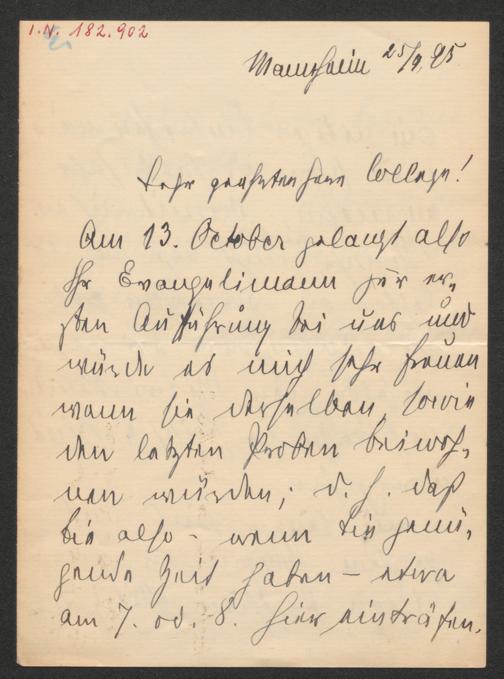 I.N. 182.902
Mannheim 25/9. 95
Sehr geehrter Herr College!
Am 13. October gelangt also
Ihr Evangelimann zur er-
sten Aufführung bei uns und
würde es mich sehr freuen
wenn sie derselben, sowie
den letzten Proben beiwoh-
nen würden; d. h. daß
Sie also - wenn Sie genü-
gende Zeit haben - etwa
am 7. od. 8. hier einträfen.